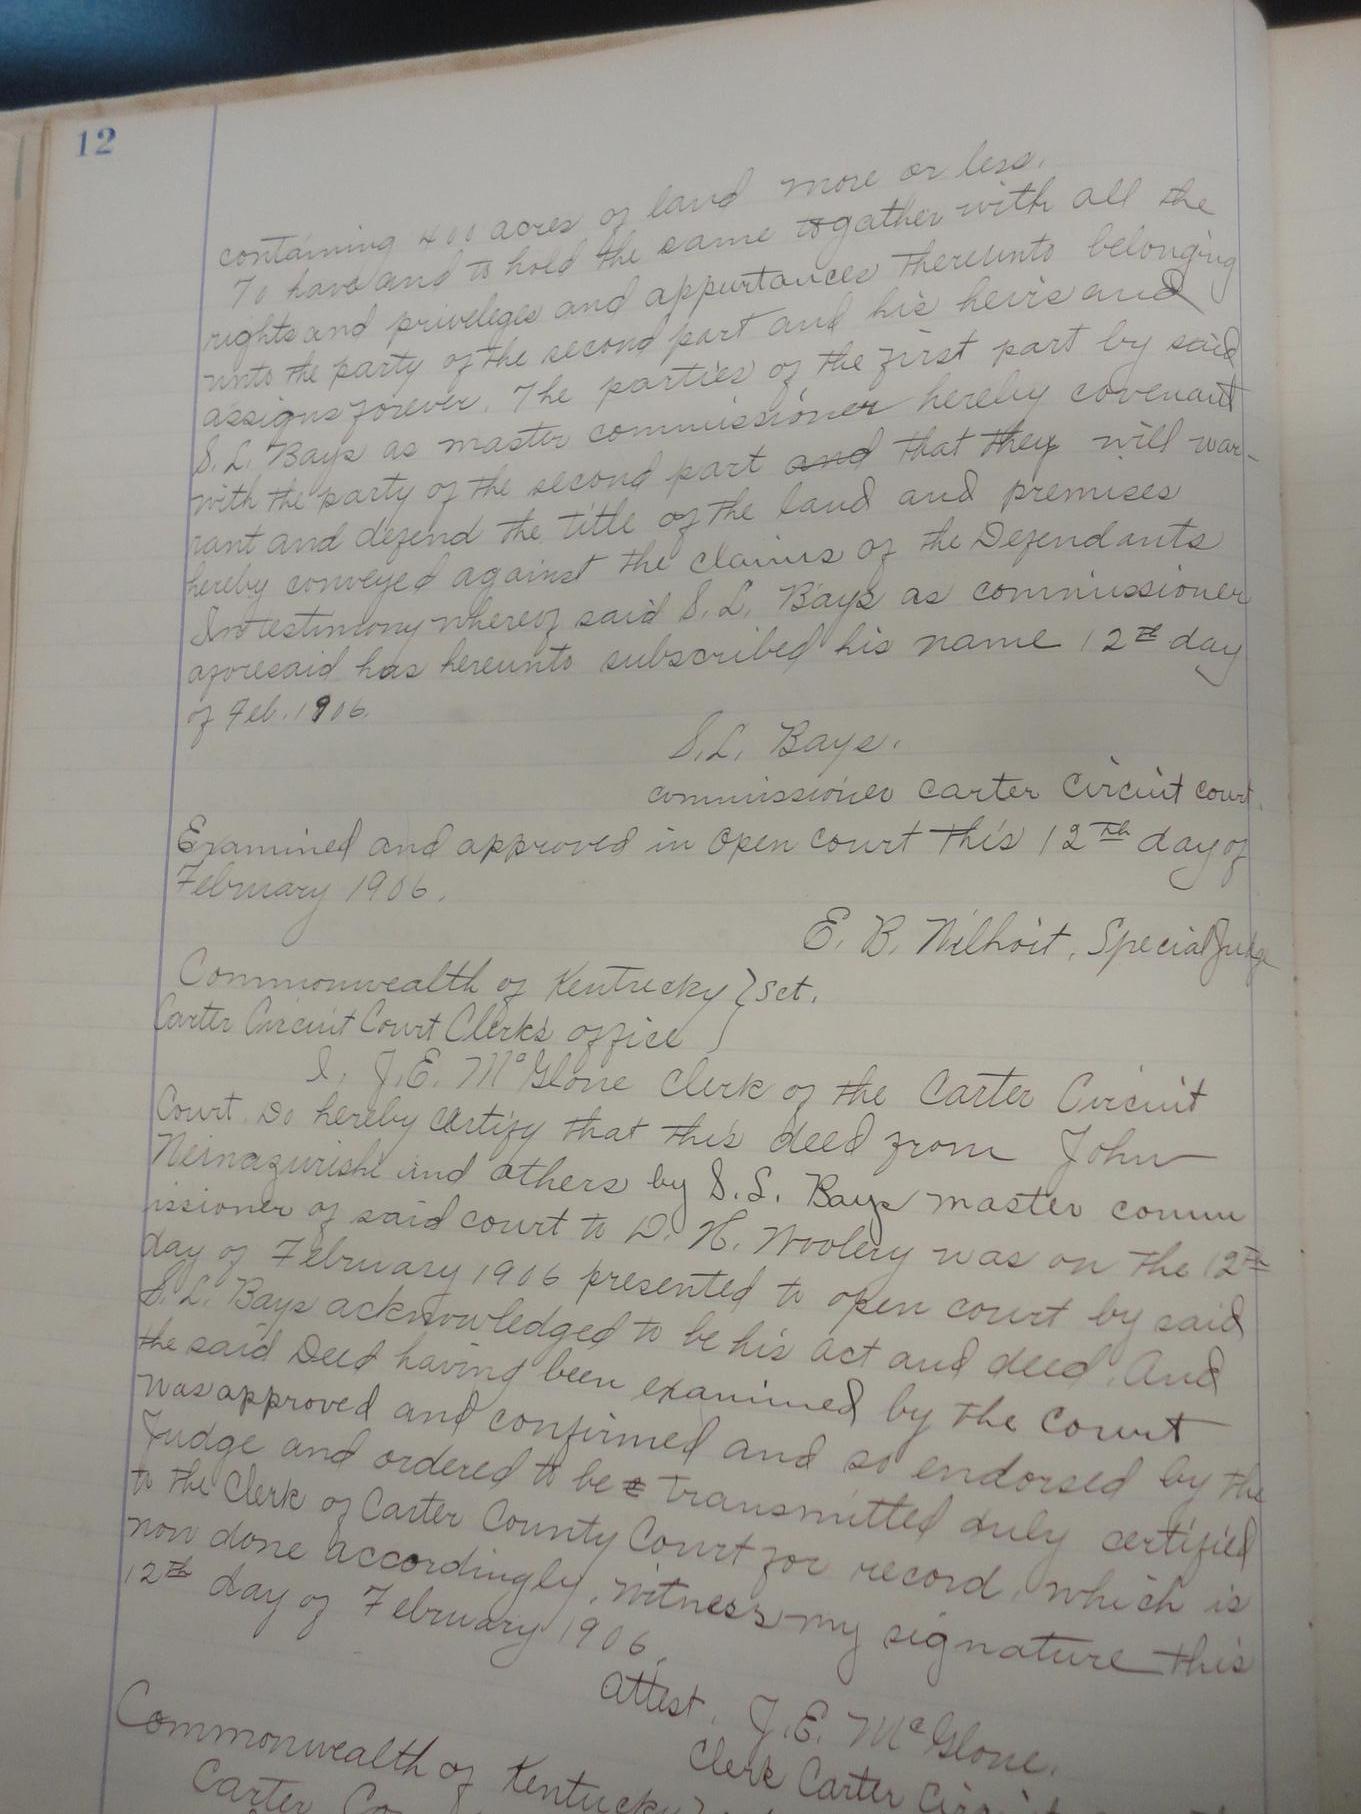 12
containing 400 acres of land more or less.
To have and to hold the same togather with all the
rights and priveleges and appurtances thereunto belonging
unto the party of the second part and his heirs and
assigns forever. The parties of the first part by said
S. L. Bays as master commissioner hereby covenant
with the party of the second part and that they will war-
rant and defend the title of the land and premises
hereby conveyed against the claims of the Defendants
In testimony whereof said S. L. Bays as commissioner
aforesaid has hereunto subscribed his name 12th day
of Feb. 1906.
S. L. Bays.
commissioner Carter Circuit court.
Examined and approved in open court this 12th day of
February 1906.
E. B. Wilhoit, Special Judge
Commonwealth of Kentucky } Sct.
Carter Circuit Court Clerk's office }
I, J. E. McGlone Clerk of the Carter Circuit
Court. Do hereby certify that this deed from John
and others by S. L. Bays master comm
issioner of said court to D. H. Woolery was on the 12th
day of February 1906 presented to open court by said
S. L. Bays acknowledged to be his act and deed. And
the said Deed having been examined by the Court
was approved and confirmed and so endorsed by the
Judge and ordered to be transmitted duly certified
to the Clerk of Carter County Court for record, which is
now done accordingly. Witness my signature this
12th day of February 1906.
Attest. J. E. McGlone.
Clerk Carter
Commonwealth of Kentucky
Carter Co